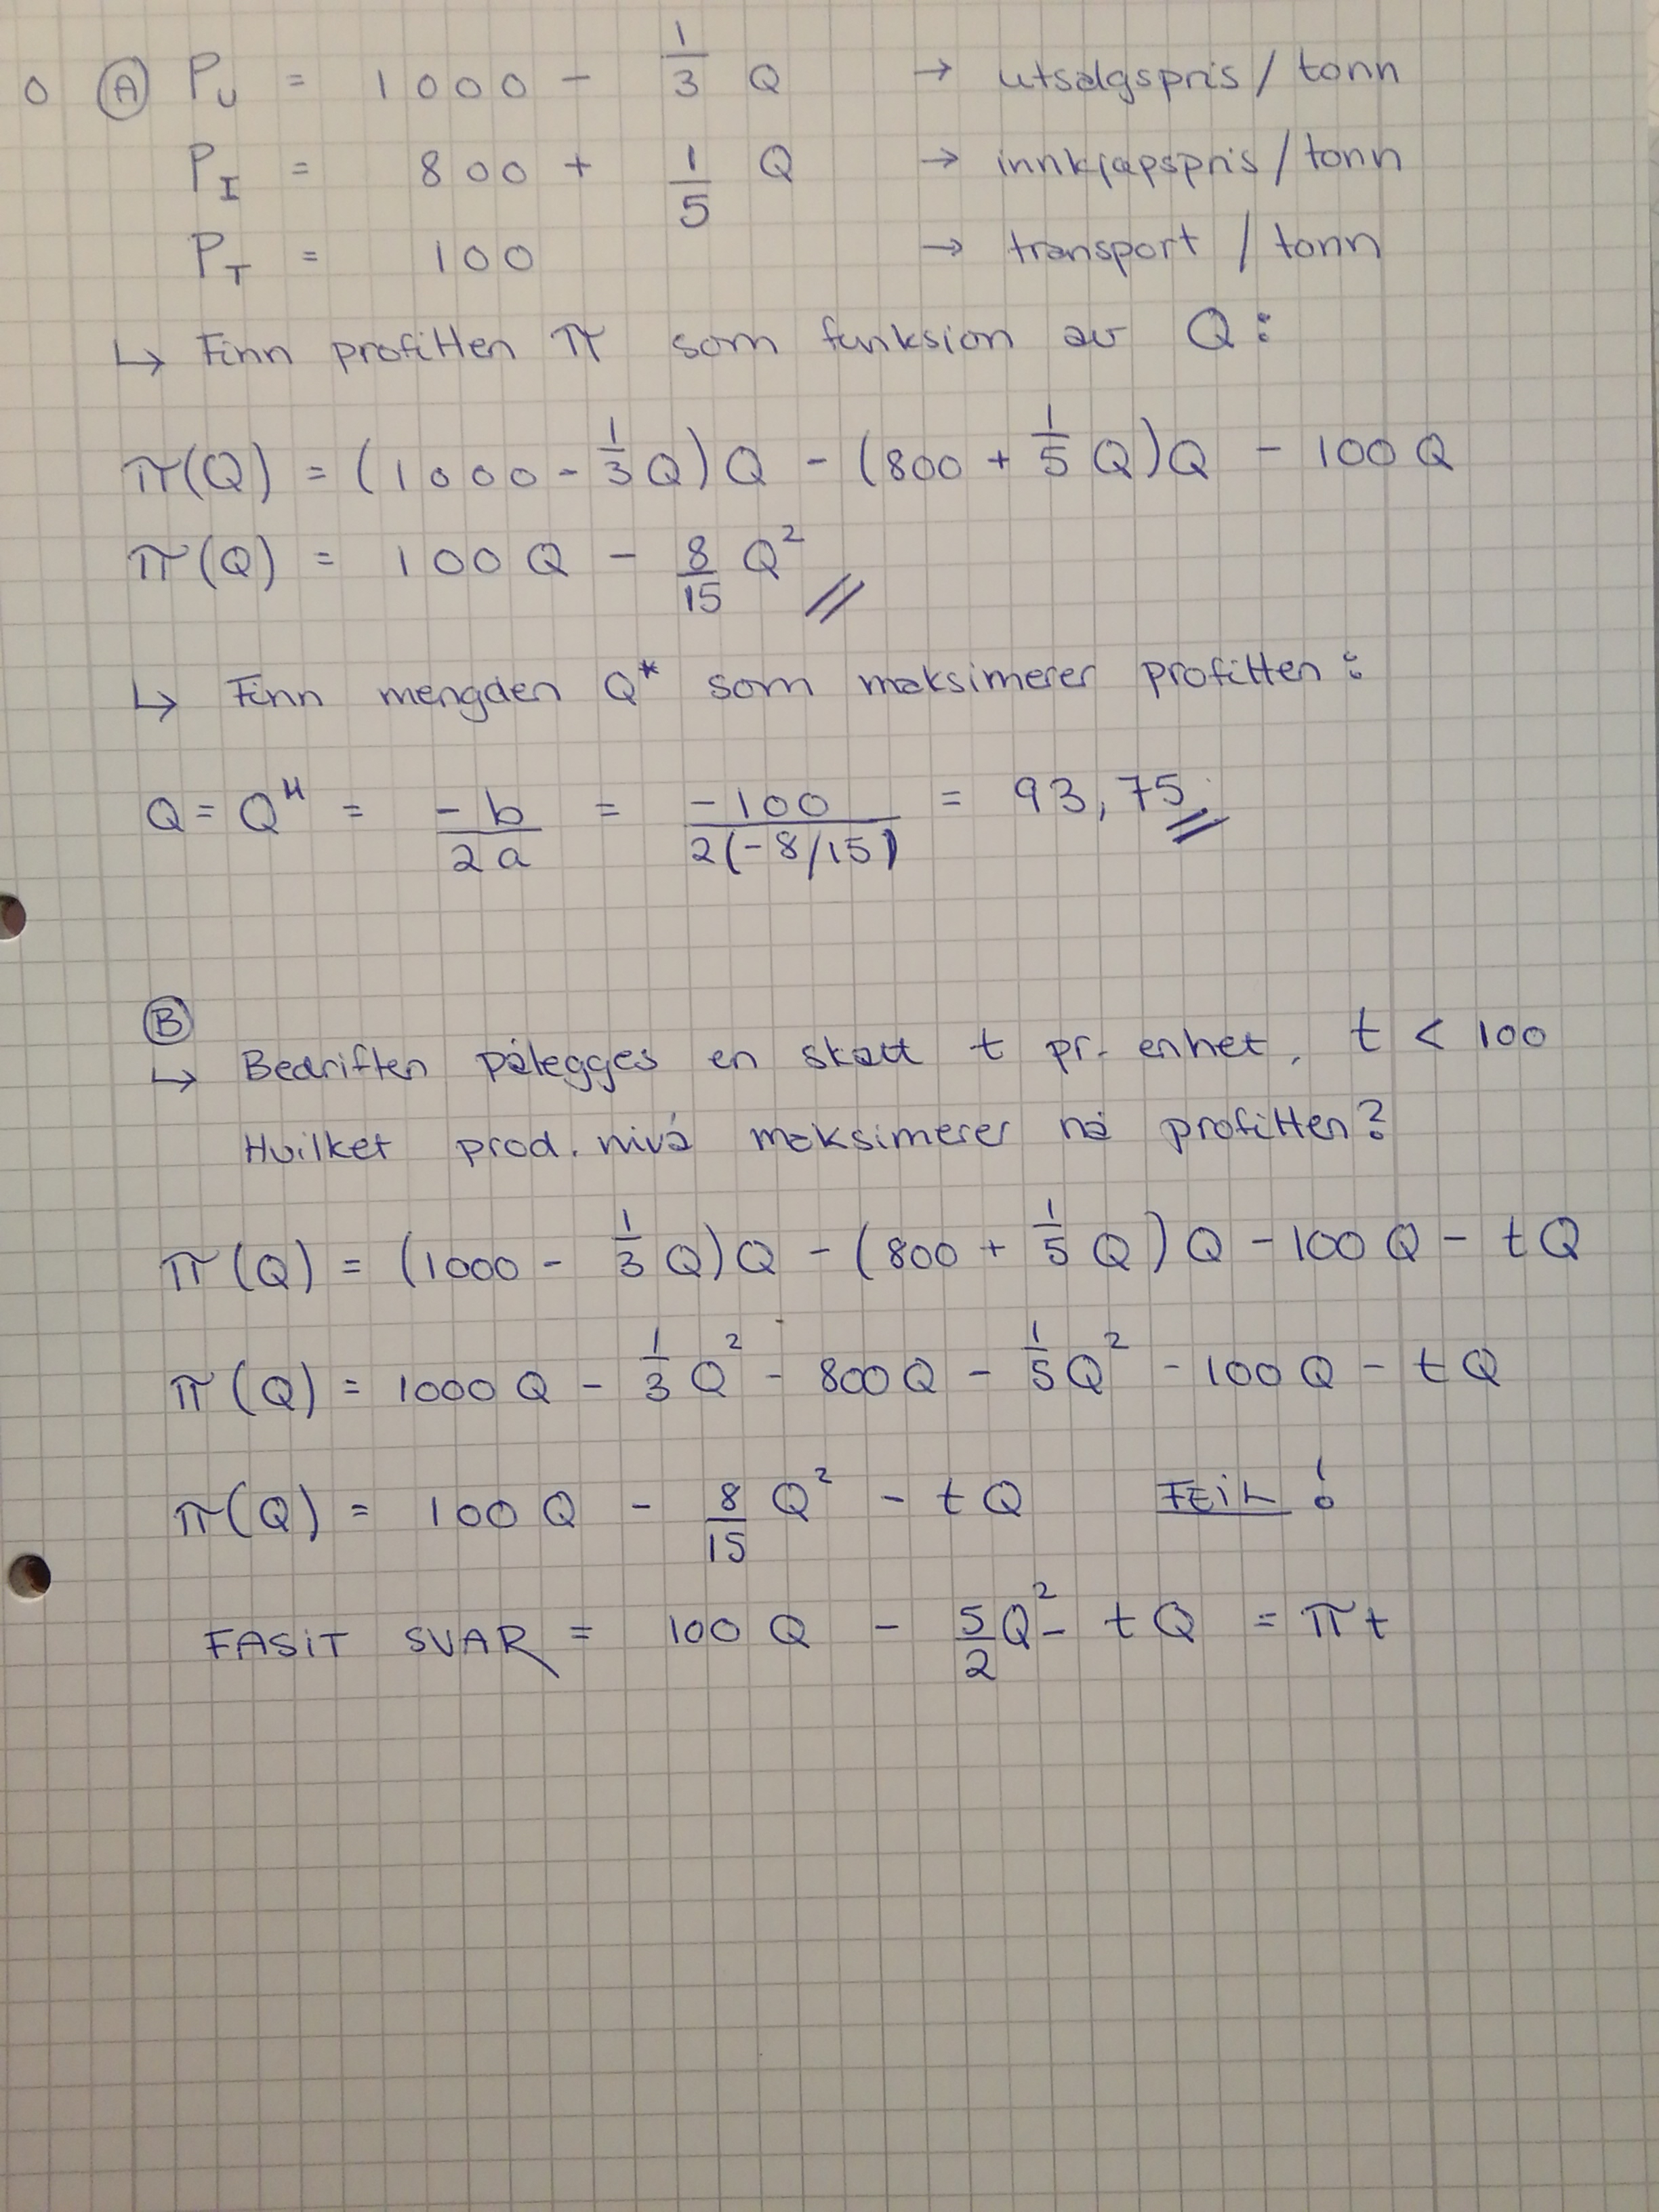 0 Ⓐ P_U = 1000 - 1/3 Q → utsalgspris / tonn
P_I = 800 + 1/5 Q → innkjøpspris / tonn
P_T = 100 → transport / tonn
↳ Finn profitten π som funksion av Q:
π(Q) = (1000 - 1/3 Q)Q - (800 + 1/5 Q)Q - 100 Q
π(Q) = 100 Q - 8/15 Q² //
↳ Finn mengden Q* som maksimerer profitten:
Q = Q* = -b/2a = -100/2(-8/15) = 93,75
Ⓑ
↳ Bedriften pålegges en skatt t pr. enhet, t < 100
Hvilket prod. nivå maksimerer nå profitten?
π(Q) = (1000 - 1/3 Q)Q - (800 + 1/5 Q)Q - 100 Q - tQ
π(Q) = 1000 Q - 1/3 Q² - 800 Q - 1/5 Q² - 100 Q - tQ
π(Q) = 100 Q - 8/15 Q² - tQ FEIL!
FASIT SVAR = 100 Q - 5/2 Q² - tQ = πt